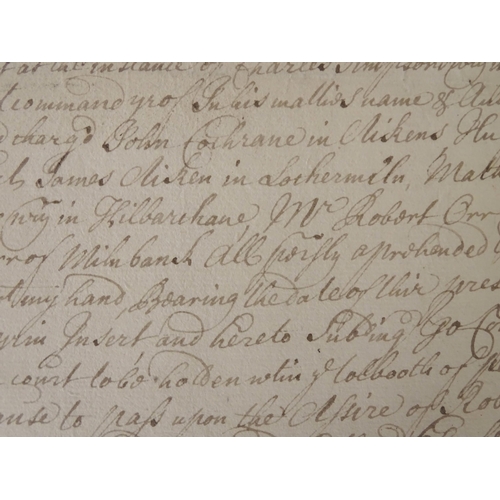 at at the instance of Charles Simpson
command yrof In his matties name & Au
charg'd John Cochrane in Aikens Hu
James Aiken in Lochermiln, Math
in Kilbarchane, Mr Robert Orr
of Milnbank All persly aprehended
my hand, Bearing the date of this pres
Insert and hereto Subding To C
court to be holden wtin ye tolbooth of
ause to pass upon the Assire of Rob